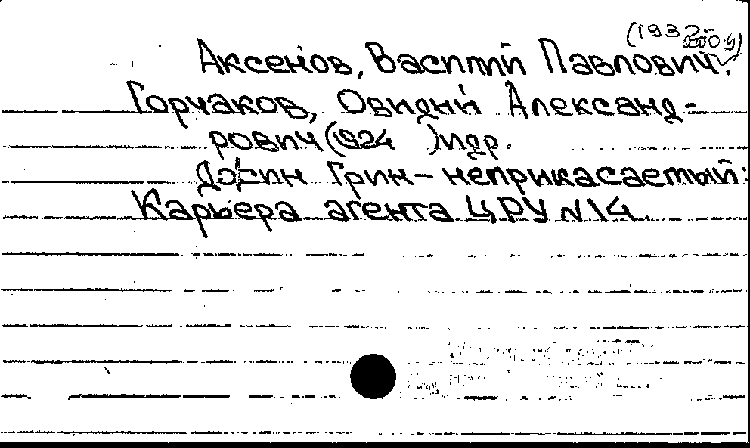 (1932-2009)
Аксенов, Василий Павлович.
Горчаков, Овидий Александ-
рович (1924 ) и др.
Джин Грин - неприкасаемый:
Карьера агента ЦРУ №14